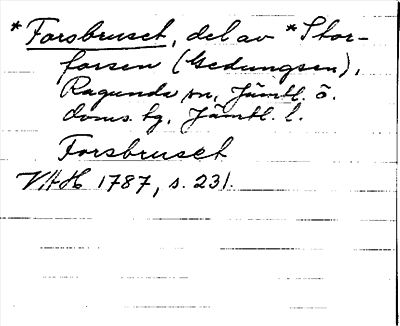 *Forsbruset, del av *Stor-
forsen (Gedungsen),
Ragunda sn, Jämtl. ö.
doms. tg, Jämtl. l.
Forsbruset
VAH 1787, s. 231.